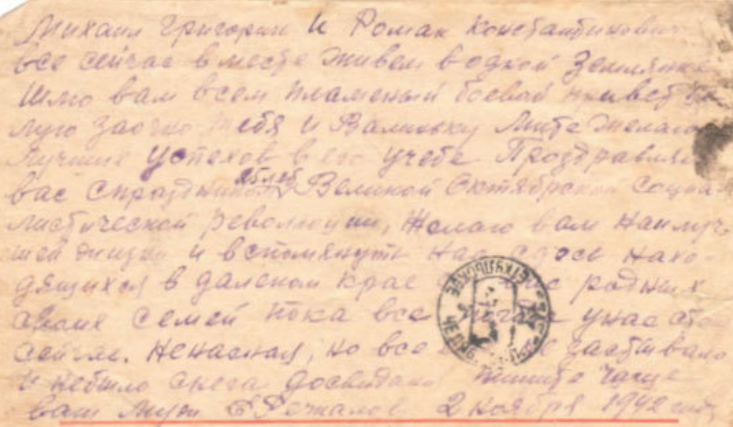 Михаил Григории и Роман Константинович
все сейчас вместе живем в одной землянке
Шлю вам всем пламеный боевой привет
лую заочно тебя и Вали Мите желаю
лучших успехов в его учебе Проздравляю
вас с праздником Великой Октябрской социа
листической революции, желаю вам наилуч
шей жизни и вспомянуть нас здесь нахо
дящихся в далеком крае родных
своих семей пока все у нас
сейчас ненасная, но все застывало
и небыло снега досвидания пишите чаще
ваш Муж 2 ноября 1942